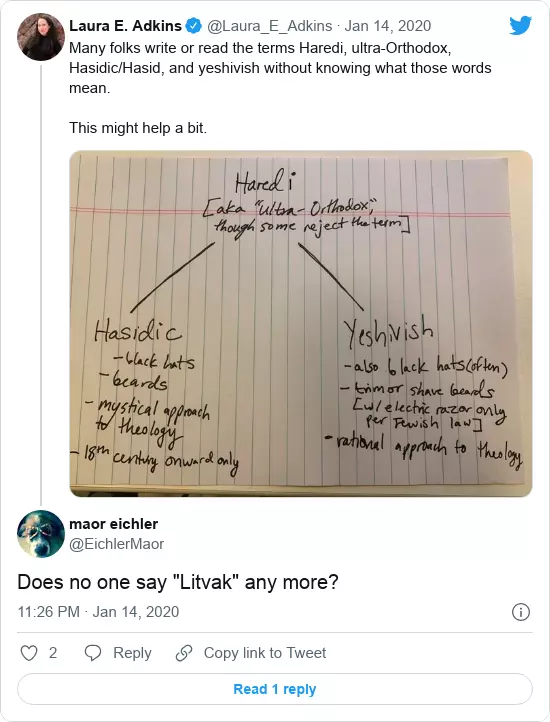 Laura E. Adkins @Laura_E_Adkins · Jan 14, 2020
Many folks write or read the terms Haredi, ultra-Orthodox,
Hasidic/Hasid, and yeshivish without knowing what those words
mean.
This might help a bit.
Haredi
[aka "ultra-Orthodox,"
though some reject the term]
Hasidic
-black hats
-beards
-mystical approach
to theology
-18th century onward only
Yeshivish
-also black hats (often)
-trim or shave beards
[w/ electric razor only
per Jewish law]
-rational approach to theology
maor eichler
@EichlerMaor
Does no one say "Litvak" any more?
11:26 PM · Jan 14, 2020
2 Reply Copy link to Tweet
Read 1 reply